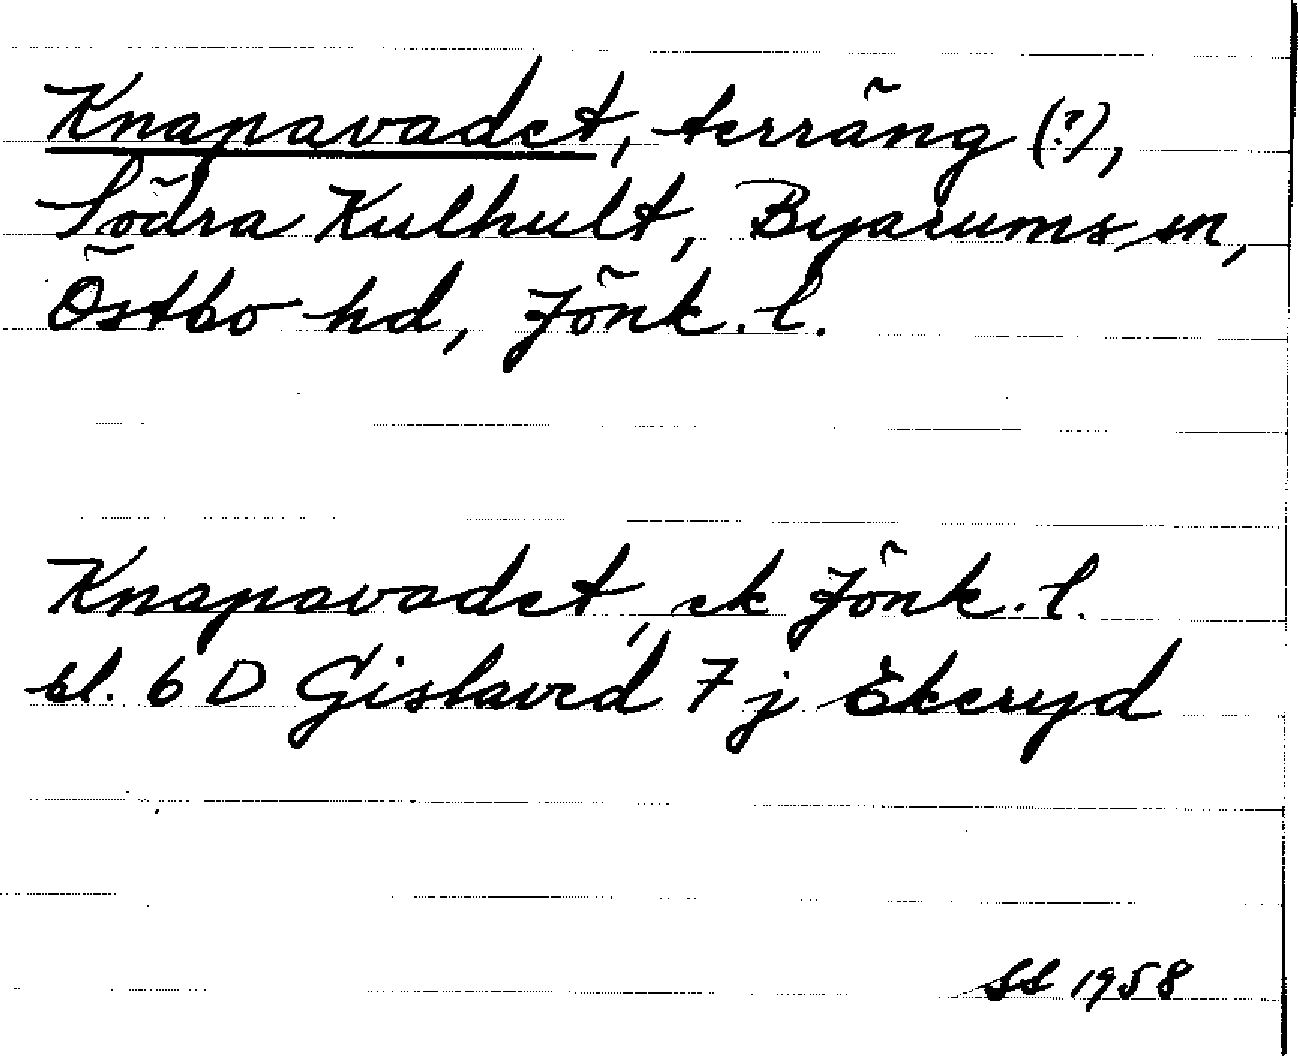 Knapavadet, terräng (?),
Södra Kulhult, Byarums sn,
Östbo hd, Jönk. l.
Knapavadet, ek Jönk. l.
bl. 6 D Gislaved 7 j Ekeryd
SS 1958